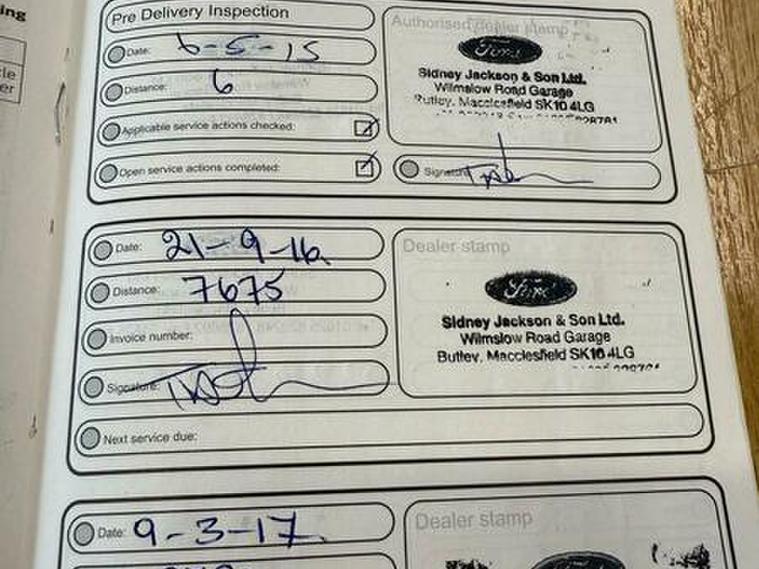 ing
Pre Delivery Inspection
Authorised dealer stamp
Date: 6-5-15
Ford
Distance: 6
Sidney Jackson & Son Ltd.
Wilmslow Road Garage
Butley, Macclesfield SK10 4LG
Applicable service actions checked:
Open service actions completed:
Signature
Date: 21-9-16
Dealer stamp
Distance: 7675
Ford
Sidney Jackson & Son Ltd.
Wilmslow Road Garage
Butley, Macclesfield SK10 4LG
Invoice number:
Signature:
Next service due:
Date: 9-3-17
Dealer stamp